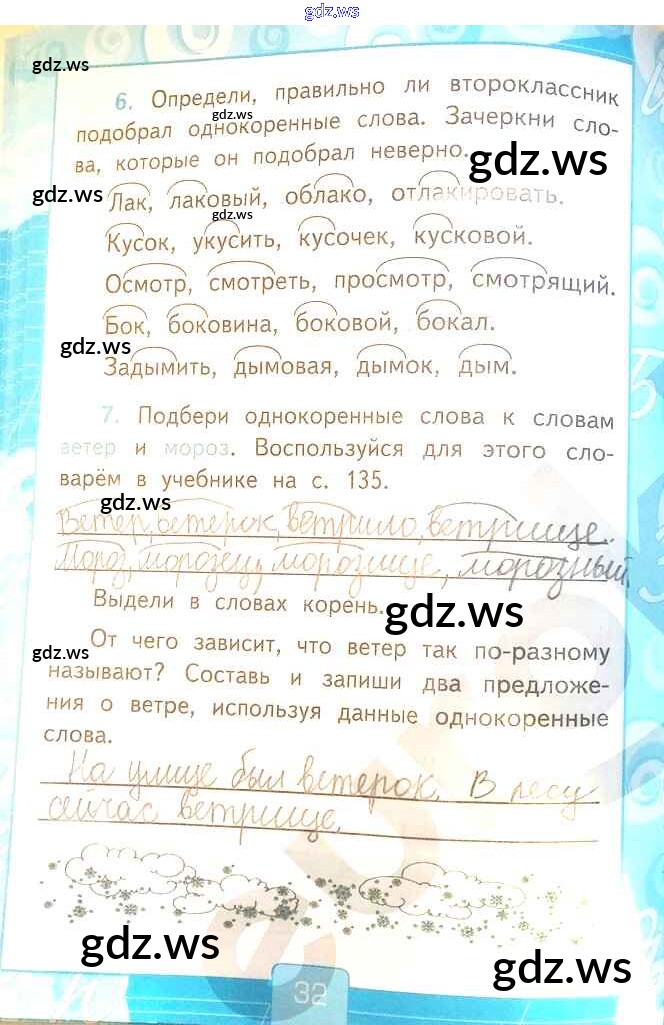 gdz.ws
gdz.ws
6. Определи, правильно ли второклассник
gdz.ws
подобрал однокоренные слова. Зачеркни сло-
ва, которые он подобрал неверно.
gdz.ws
Лак, лаковый, облако, отлакировать.
gdz.ws
gdz.ws
Кусок, укусить, кусочек, кусковой.
Осмотр, смотреть, просмотр, смотрящий.
Бок, боковина, боковой, бокал.
gdz.ws
Задымить, дымовая, дымок, дым.
7. Подбери однокоренные слова к словам
ветер и мороз. Воспользуйся для этого сло-
варём в учебнике на с. 135.
gdz.ws
Ветер, ветерок, ветрило, ветрище.
Мороз, морозец, морозище, морозный.
Выдели в словах корень.
gdz.ws
От чего зависит, что ветер так по-разному
gdz.ws
называют? Составь и запиши два предложе-
ния о ветре, используя данные однокоренные
слова.
На улице был ветерок. В лесу
сейчас ветрище.
gdz.ws
gdz.ws
32